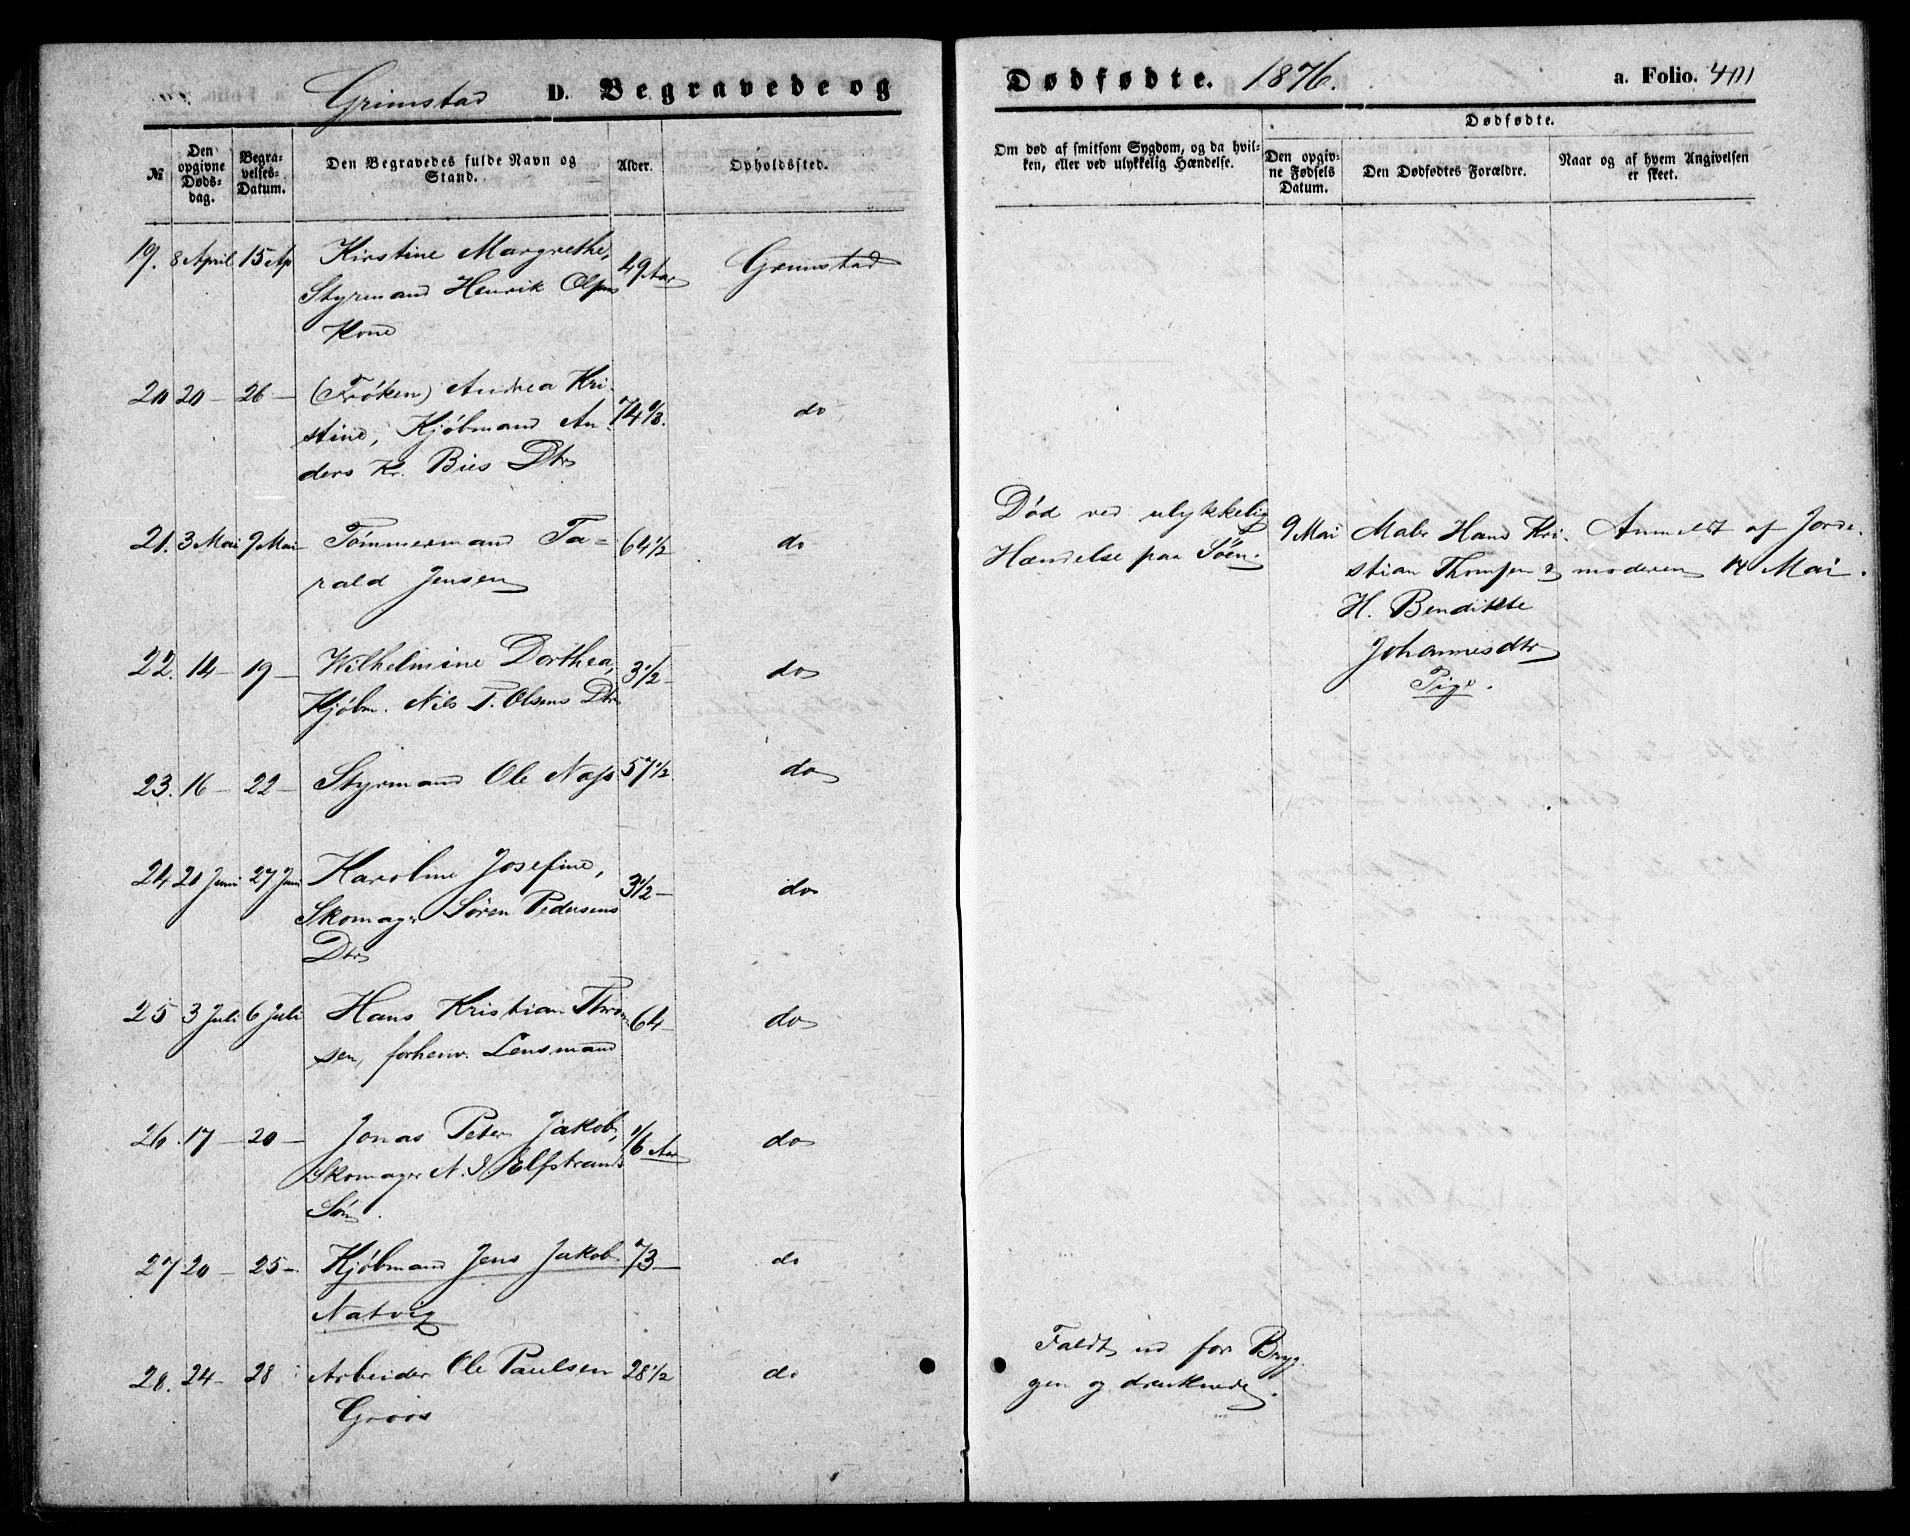 Grimstad D. Begravede og
Dødfødte. 1876. a. Folio. 401
№
Den opgivne Døds-dag.
Begra-velses-Datum.
Den Begravedes fulde Navn og Stand.
Alder.
Opholdssted.
Om død af smitsom Sygdom, og da hvil-
ken, eller ved ulykkelig Hændelse.
Dødfødte.
Den opgiv-ne Fødsels Datum.
Den Dødfødtes Forældre.
Naar og af hvem Angivelsen er skeet.
19. 8 April 15 Ap Kirstine Margrethe, 49 Aar Grimstad
Styrmand Henrik Olsens
Kone
20 20 – 26 – (Frøken) Andrea Kri- 74 do
stine, Kjøbmand An-
ders Kr. Bies Dtr
21. 3 Mai 9 Mai Tømmermand Ta- 64 1/2 do
rald Jensen
Død ved ulykkelig
Hændelse paa Søen.
9 Mai Maler Hans Kri-
stian Thomsen &
H. Bendikte
Johannesdtr
Pige.
Anmeldt af Jorde-
moderen 14 Mai.
22. 14 – 19 – Wilhelmine Dorthea, 3 1/2 – do
Kjøbm. Nils T. Olsens Dtr
23. 16 – 22 – Styrmand Ole Næss 57 1/2 do
24 20 Juni 27 Juni Karoline Josefine, 3 1/2 – do
Skomager Søren Pedersens
Dtr
25 3 Juli 6 Juli Hans Kristian Thom 64 – do
sen, forhenv. Lensmand
26. 17 – 20 – Jonas Peter Jakob, 1/6 Aar do
Skomager N. J. Elfstrands
Søn.
27 20 – 25 – Kjøbmand Jens Jakob 73 – do
Natvig
28. 24 – 28 Arbeider Ole Paulsen 28 1/2 do
Groos
Faldt ud for Bryg-
gen og druknede.